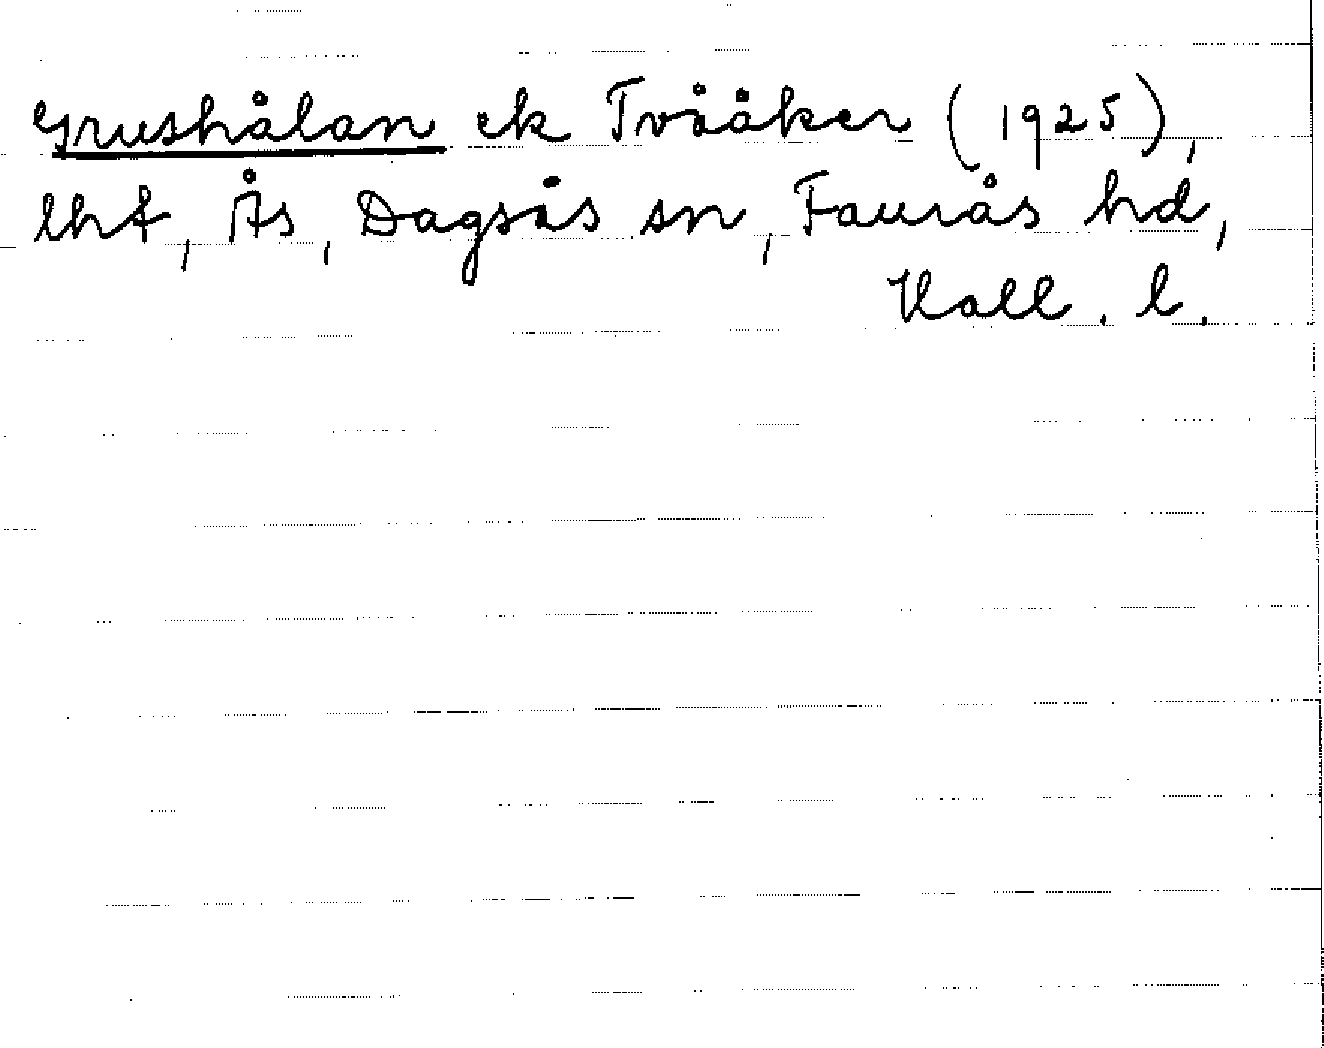 Grushålan ek Tvååker (1925),
lht, Ås, Dagsås sn, Faurås hd,
Hall. l.